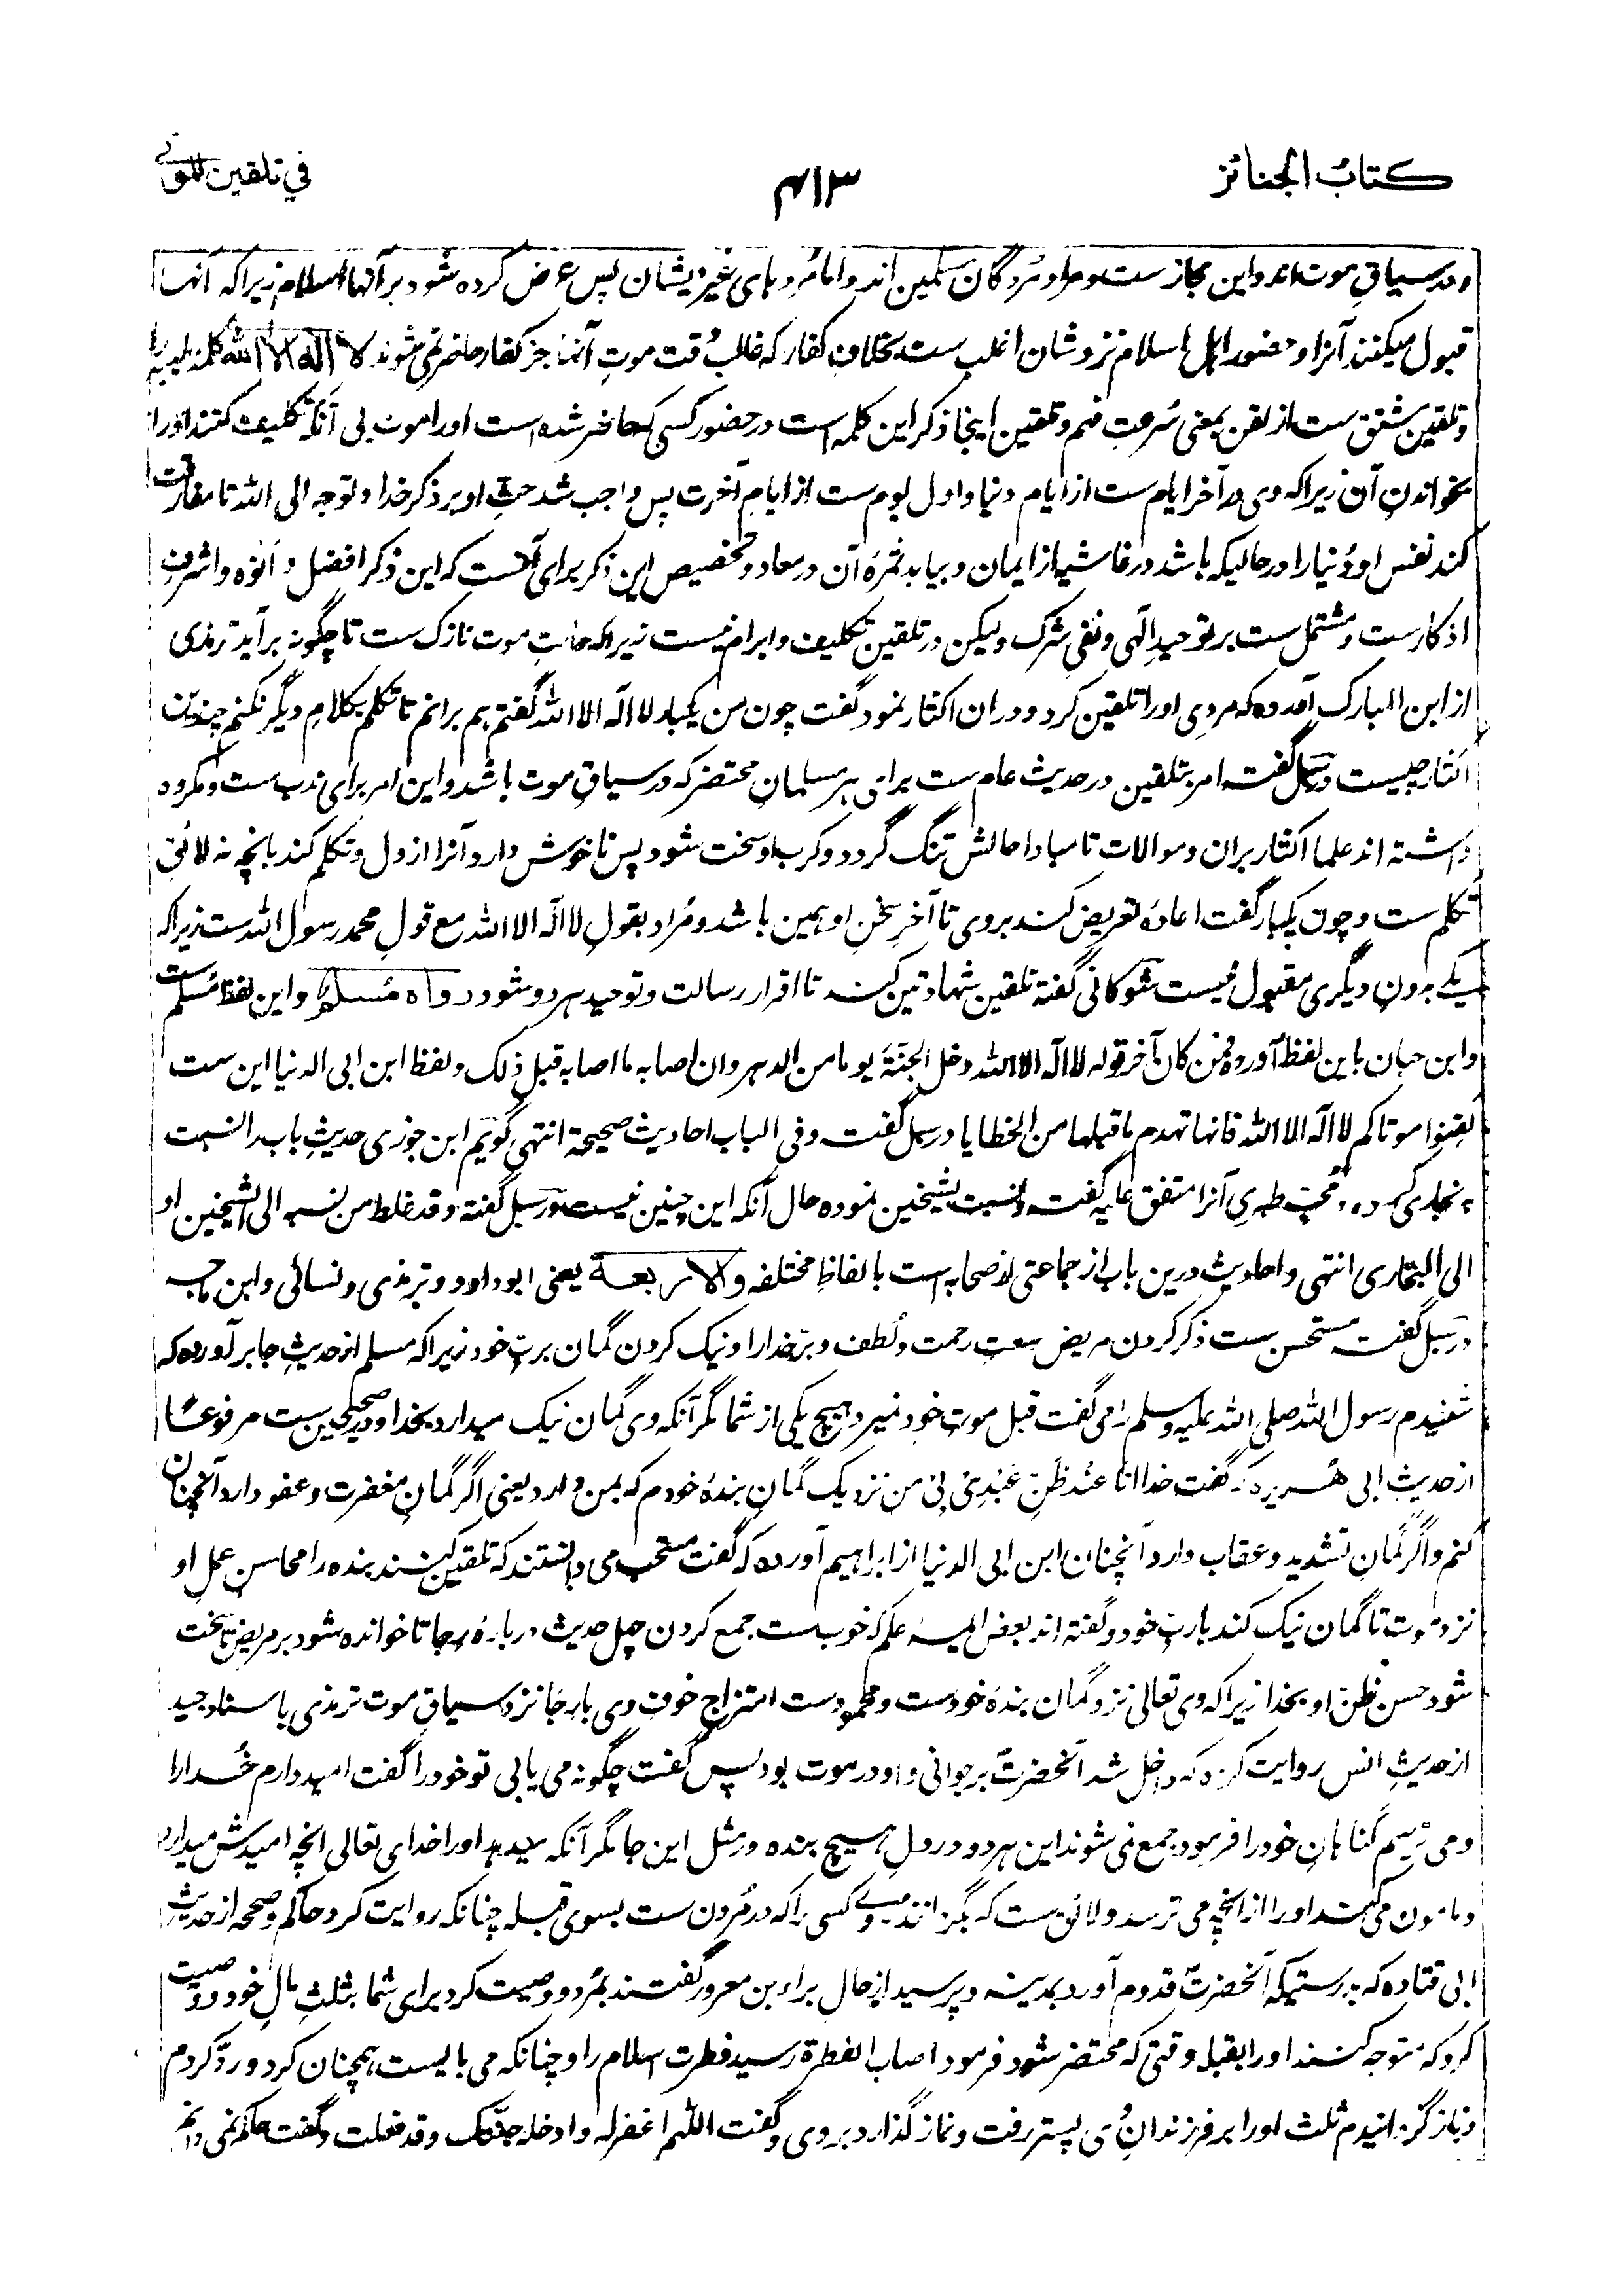 كتاب الجنائز
۴۱۳
في تلقين الموتى
ودر سیاقِ موت اند واین مجاز ست ومراد مُردگان مسلمین اند واما مُردہای غیر ایشان پس عرض کردہ شود بر آنہا اسلام زیراکہ آنہا
قبول میکنند آنرا وحضور اہل اسلام نزد شان اغلب ست بخلافِ کفار کہ غالب وقت موتِ آنہا جز کفار حاضر نمی شوند لا الہ الا اللہ کلمۂ
وتلقین مشتق ست از لقن بمعنی سُرعتِ فہم وتلقین اینجا ذکر این کلمہ است در حضور کسی کہ حاضر شدہ است اورا موت بی آنکہ تکلیف کنند اورا
بخواندنِ آن زیراکہ وی در آخر ایام ست از ایام دنیا واول یوم ست از ایامِ آخرت پس واجب شد حثِ او بر ذکر خدا وتوجہ الی اللہ تا مفارقت
کند نفس او دُنیا را در حالیکہ باشد در غاشیہ از ایمان وبیابد ثمرۂ آن در معاد وتخصیص این ذکر برای آنست کہ این ذکر افضل و انوہ واشرفِ
اذکار ست ومشتمل ست بر توحیدِ الٰہی ونفیِ شرک ولیکن در تلقین تکلیف وابرام نیست زیراکہ حالتِ موت نازک ست تا چگونہ برآید ترمذی
از ابن المبارک آمدہ کہ مردی اورا تلقین کرد ودران اکثار نمود گفت چون من یکبار لا الہ الا اللہ گفتم ہم برانم تا تکلم بکلامِ دیگر نکنم چندین
اکثار چیست ودر سبل گفتہ امر بتلقین در حدیث عام ست برای ہر مسلمانِ محتضر کہ در سیاقِ موت باشد واین امر برای ندب ست ومکروہ
داشتہ اند علما اکثار بران وموالات تا مبادا حالش تنگ گردد وکرب او سخت شود پس ناخوش دارد آنرا از دل وتکلم کند بانچہ نہ لائقِ
تکلم ست وچون یکبار گفت اعادۂ تعریض کنند بروی تا آخرِ سخنِ او ہمین باشد ومُراد بقولِ لا الہ الا اللہ مع قولِ محمد رسول اللہ ست زیراکہ
یکے بدونِ دیگری مقبول نیست شوکانی گفتہ تلقین شہادتین کنند تا اقرار رسالت وتوحید ہر دو شود رواہ مسلم واین لفظ مُسلم ست
وابن حبان باین لفظ آوردہ فمن کان آخر قولہ لا الہ الا اللہ دخل الجنۃ یوما من الدہر وان اصابہ ما اصابہ قبل ذلک ولفظ ابن ابی الدنیا این ست
لقنوا موتاکم لا الہ الا اللہ فانہا تہدم ما قبلہا من الخطایا در سبل گفت وفی الباب احادیث صحیحۃ انتہی گویم ابن جوزی حدیثِ باب را نسبت
بہ بخاری کردہ ومُحبّ طبری آنرا متفق علیہ گفتہ ونسبت بشیخین نمودہ حال آنکہ این چنین نیست ودر سبل گفتہ وقد غلط من نسبہ الی الشیخین او
الی البخاری انتہی واحادیث درین باب از جماعتی از صحابہ است بالفاظِ مختلفہ والاربعۃ یعنی ابوداود وترمذی ونسائی وابن ماجہ
در سبل گفتہ مستحسن ست ذکر کردن مریض سعتِ رحمت ولُطف وبرّ خدا را ونیک کردن گمان بربّ خود زیراکہ مسلم از حدیثِ جابر آوردہ کہ
شنیدم رسول اللہ صلی اللہ علیہ وسلم را می گفت قبل موتِ خود نمیرد ہیچ یکی از شما مگر آنکہ وی گمان نیک میدارد بخدا ودر صحیحین ست مرفوعًا
از حدیثِ ابی ہریرہ کہ گفت خدا انا عند ظَنِّ عَبْدِیْ بِیْ من نزدیک گمانِ بندۂ خودم کہ بمن دارد یعنی اگر گمانِ مغفرت وعفو دارد آنچنان
کنم واگر گمانِ تشدید وعقاب دارد آنچنان ابن ابی الدنیا از ابراہیم آوردہ کہ گفت مستحب می دانستند کہ تلقین کنند بندہ را محاسنِ عملِ او
نزد موت تا گمان نیک کند باربِّ خود وگفتہ اند بعض ائمۂ علم کہ خوب ست جمع کردن چہل حدیث دربارۂ رجا تا خواندہ شود بر مریض تا سخت
شود حسن ظنّ او بخدا زیراکہ وی تعالی نزد گمان بندۂ خودست ومحمود ست امتزاجِ خوفِ وی با رجا نزد سیاقِ موت ترمذی باسناد جید
از حدیثِ انس روایت کردہ کہ داخل شد آنحضرتؐ بر جوانی واو در موت بود پس گفت چگونہ می یابی تو خود را گفت امید دارم خُدا را
ومی ترسم گناہانِ خود را فرمود جمع نمی شوند این ہر دو در دلِ ہیچ بندہ در مثل این جا مگر آنکہ میدہد اورا خدای تعالی انچہ امیدش میدارد
ومامون می کند اورا از انچہ می ترسد ولائق ست کہ بگردانند روے کسی را کہ در مُردن ست بسوی قبلہ چنانکہ روایت کرد حاکم وصححہ از حدیثِ
ابی قتادہ کہ بدرستیکہ آنحضرتؐ قدوم آورد بمدینہ وپرسید از حالِ براء بن معرور گفتند بمُرد ووصیت کرد برای شما بثلثِ مالِ خود ووصیت
کرد کہ متوجہ کنند اورا بقبلہ وقتی کہ محتضر شود فرمود اصاب الفطرۃ رسید فطرت اسلام را وچنانکہ می بایست ہمچنان کرد وردّ کردم
وباز گردانیدم ثلث اورا بر فرزندانِ وی پستر رفت ونماز گذارد بروی وگفت اللہم اغفر لہ وادخلہ جنتک وقد فعلت وگفت حاکم نمی دانم